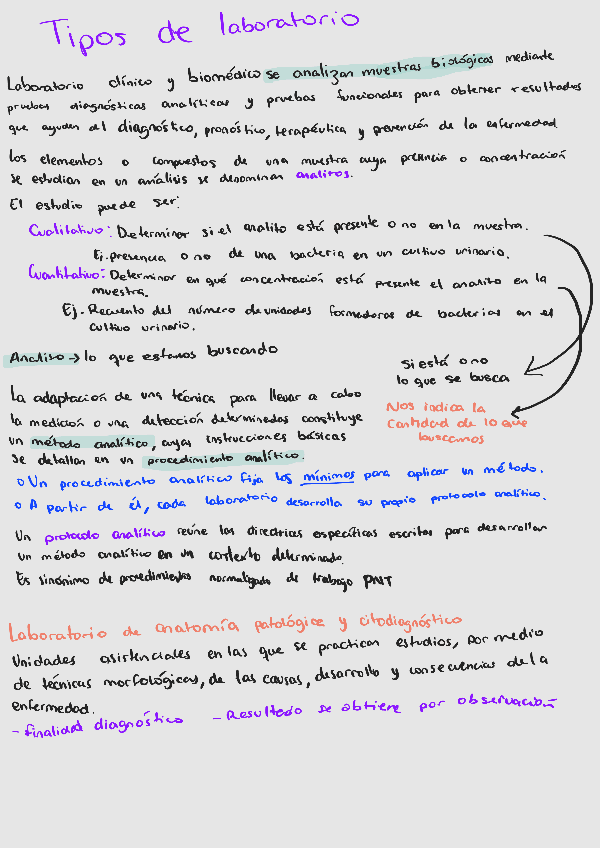 Tipos de laboratorio
Laboratorio clínico y biomédico se analizan muestras biológicas mediante
pruebas diagnósticas analíticas y pruebas funcionales para obtener resultados
que ayuden al diagnóstico, pronóstico, terapéutica y prevención de la enfermedad
Los elementos o compuestos de una muestra cuya presencia o concentración
se estudian en un análisis se denominan analitos.
El estudio puede ser:
Cualitativo: Determinar si el analito está presente o no en la muestra.
Ej. presencia o no de una bacteria en un cultivo urinario.
Cuantitativo: Determinar en qué concentración está presente el analito en la
muestra.
Ej. Recuento del número de unidades formadoras de bacterias en el
cultivo urinario.
Analito → lo que estamos buscando
Si está o no
lo que se busca
Nos indica la
Cantidad de lo que
buscamos
La adaptación de una técnica para llevar a cabo
la medición o una detección determinadas constituye
un método analítico, cuyas instrucciones básicas
se detallan en un procedimiento analítico.
o Un procedimiento analítico fija los mínimos para aplicar un método.
o A partir de él, cada laboratorio desarrolla su propio protocolo analítico.
Un protocolo analítico reúne las directrices específicas escritas para desarrollar
un método analítico en un contexto determinado.
Es sinónimo de procedimientos normalizado de trabajo PNT
Laboratorio de anatomía patológica y citodiagnóstico
Unidades asistenciales en las que se practican estudios, por medio
de técnicas morfológicas, de las causas, desarrollo y consecuencias de la
enfermedad.
- finalidad diagnóstico - Resultado se obtiene por observación